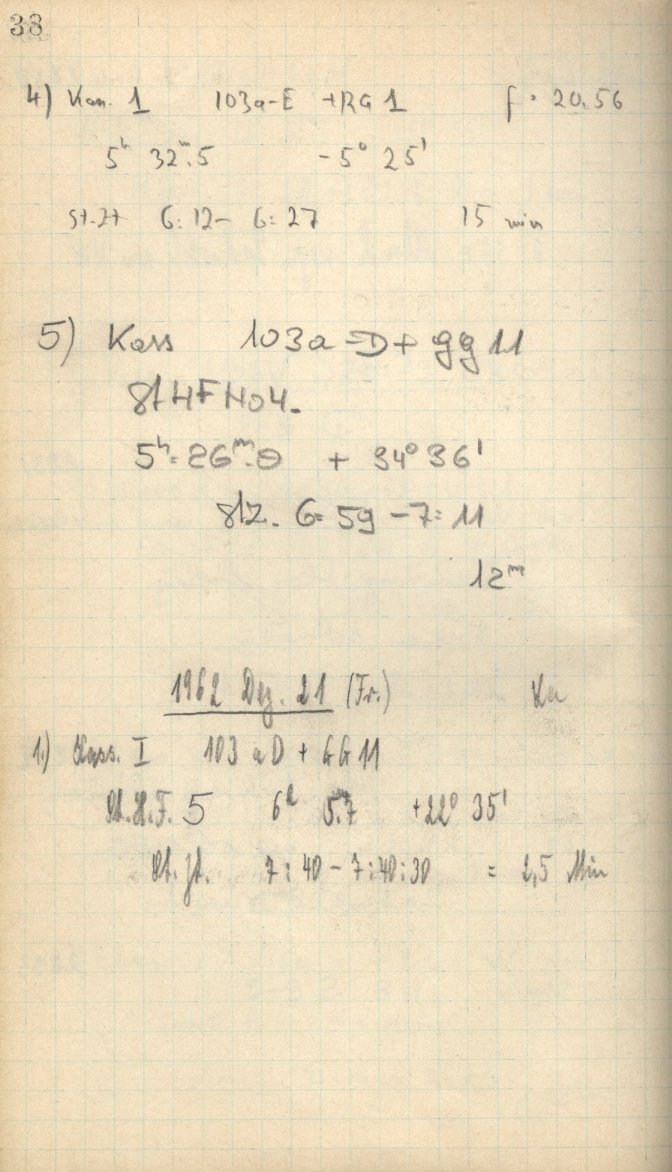 38
4) Kas. 1 103a-E +RG 1 f = 20.56
5ʰ 32ᵐ.5 -5° 25'
St.Zt 6:12- 6:27 15 min
5) Kass 103a-D+ gg 11
StHF No4.
5ʰ: 26ᵐ.0 + 34° 36'
StZ. 6: 59 - 7: 11
12ᵐ
1962 Dez. 21 (Fr.)
1.) Kass. I 103 aD + GG 11
St.H.F. 5 6ʰ 5ᵐ.7 +22° 35'
St.Zt. 7:40 - 7:40:30 = 2,5 Min